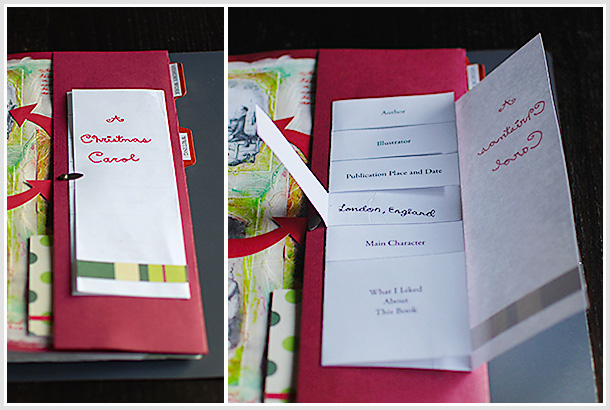 A
Christmas
Carol
A
Christmas
Carol
Author
Illustrator
Publication Place and Date
London, England
Main Character
What I Liked
About
This Book